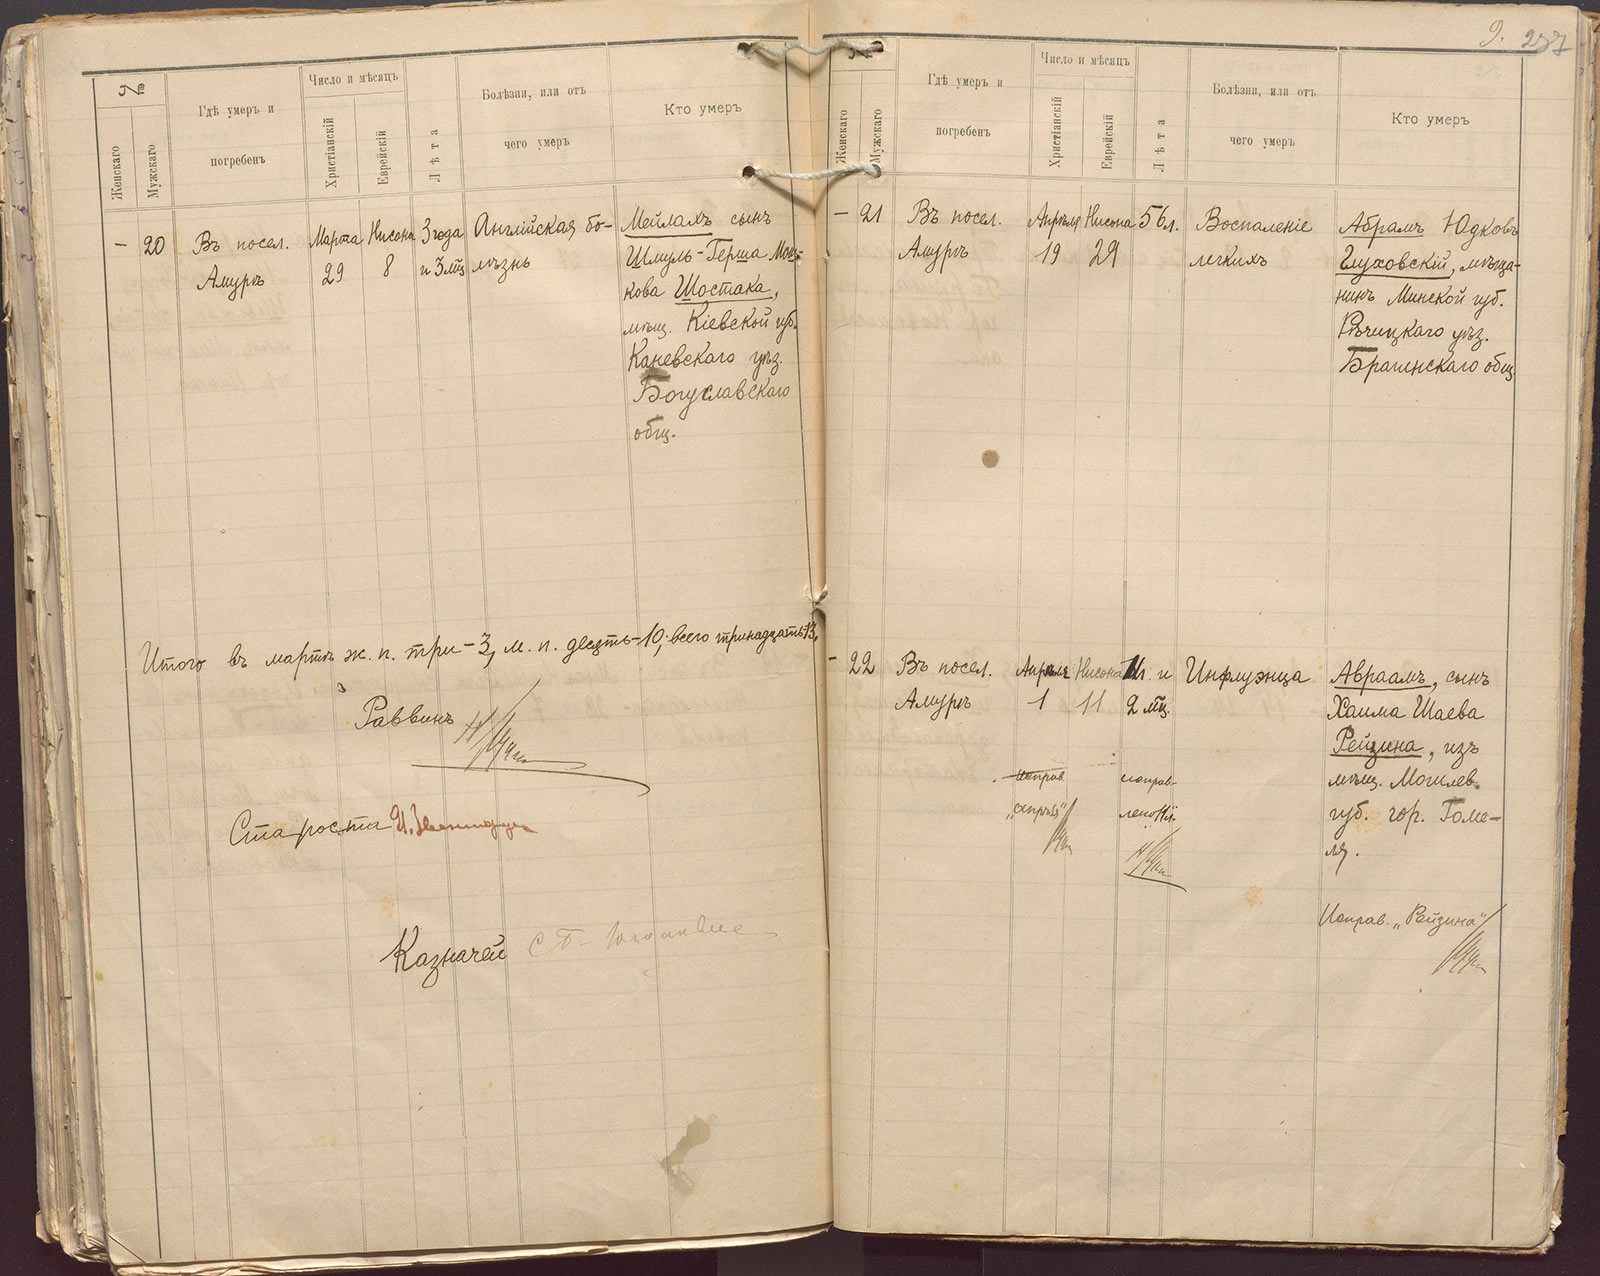 №
Женскаго
Мужскаго
Гдѣ умеръ и
погребенъ
Число и мѣсяцъ
Христіанскій
Еврейскій
Лѣта
Болѣзни, или отъ
чего умеръ
Кто умеръ
– 20
Въ посел.
Амурѣ
Марта
29
Нисона
8
3 года
и 3 мц
Англійская бо-
лѣзнь
Мейлахъ сынъ
Шмуль-Герша Мош-
кова Шостака,
мѣщ. Кіевской губ.
Каневскаго уѣз.
Богуславскаго
общ.
Итого въ мартѣ ж. п. три – 3, м. п. десять – 10, всего тринадцать 13.
Раввинъ
Староста И.
Казначей
9. 237
№
Женскаго
Мужскаго
Гдѣ умеръ и
погребенъ
Число и мѣсяцъ
Христіанскій
Еврейскій
Лѣта
Болѣзни, или отъ
чего умеръ
Кто умеръ
– 21
Въ посел.
Амурѣ
Апрѣля
19
Нисона
29
56 л.
Воспаленіе
легкихъ
Абрамъ Юдковъ
Глуховскій, мѣща-
нинъ Минской губ.
Рѣчицкаго уѣз.
Брагинскаго общ.
– 22
Въ посел.
Амурѣ
Апрѣля
1
Нисона
11
и
2 мц.
Инфлуэнца
Авраамъ, сынъ
Хаима Шаева
Рейзина, изъ
мѣщ. Могилев.
губ. гор. Гоме-
ля.
исправ
исправ-
лено
Исправ. „Рейзина"